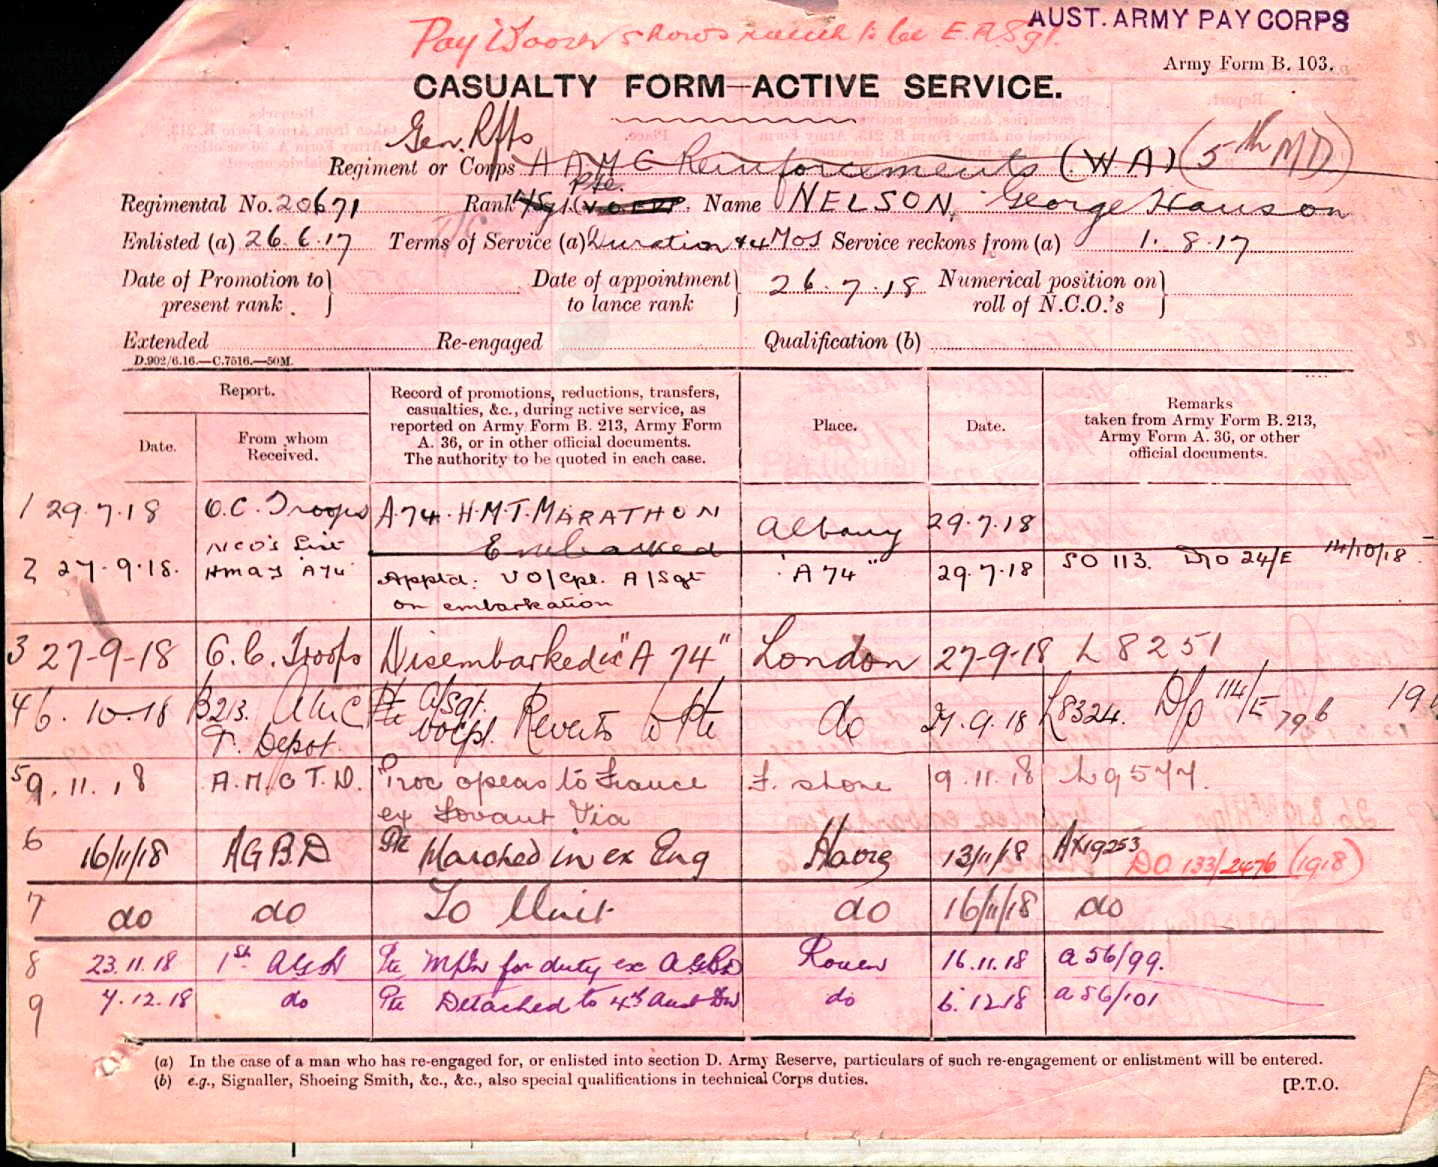 AUST. ARMY PAY CORPS
Pay shows rank to be E.R.Sgt.
Army Form B. 103.
CASUALTY FORM—ACTIVE SERVICE.
Gen. Rfts
Regiment or Corps A A M C Reinforcements (WA) (5th MD)
Pte.
Regimental No. 20671 Rank Name NELSON, George Hanson
Enlisted (a) 26.6.17 Terms of Service (a) Duration & 4 Mos Service reckons from (a) 1.8.17
Date of Promotion to present rank. Date of appointment to lance rank 26.7.18 Numerical position on roll of N.C.O.'s
Extended Re-engaged Qualification (b)
D.902/6.16.—C.7516.—50M.
Report.
Date. From whom Received.
Record of promotions, reductions, transfers, casualties, &c., during active service, as reported on Army Form B. 213, Army Form A. 36, or in other official documents. The authority to be quoted in each case.
Place.
Date.
Remarks taken from Army Form B. 213, Army Form A. 36, or other official documents.
1 29.7.18 O.C. Troops A.74. H.M.T. MARATHON Embarked Albany 29.7.18
2 27.9.18. NCO's List HMAS "A74" Apptd. VO/Cpl. A/Sgt on embarkation "A 74" 29.7.18 SO 113. DO 24/E 14/10/18
3 27-9-18 O.C. Troops Disembarked "A 74" London 27-9-18 L 8251
4 6.10.18 B213. AMC T. Depot. Pte A/Sgt. VoCpl. Reverts to Pte do 27.9.18 L8324. D/O 114/E 796 19
5 9.11.18 A.M.C T.D. Proc o'seas to France ex Lovant Via F. stone 9.11.18 L9577.
6 16/11/18 AGBD Pte Marched in ex Eng Havre 13/11/18 AX19253 DO 133/2476 (1918)
7 do do To Unit do 16/11/18 do
8 23.11.18 1st AGH Pte M/In for duty ex AGBD Rouen 16.11.18 A56/99.
9 7.12.18 do Pte Detached to 4th Aust Div do 6.12.18 A56/101
(a) In the case of a man who has re-engaged for, or enlisted into section D. Army Reserve, particulars of such re-engagement or enlistment will be entered.
(b) e.g., Signaller, Shoeing Smith, &c., &c., also special qualifications in technical Corps duties.
[P.T.O.